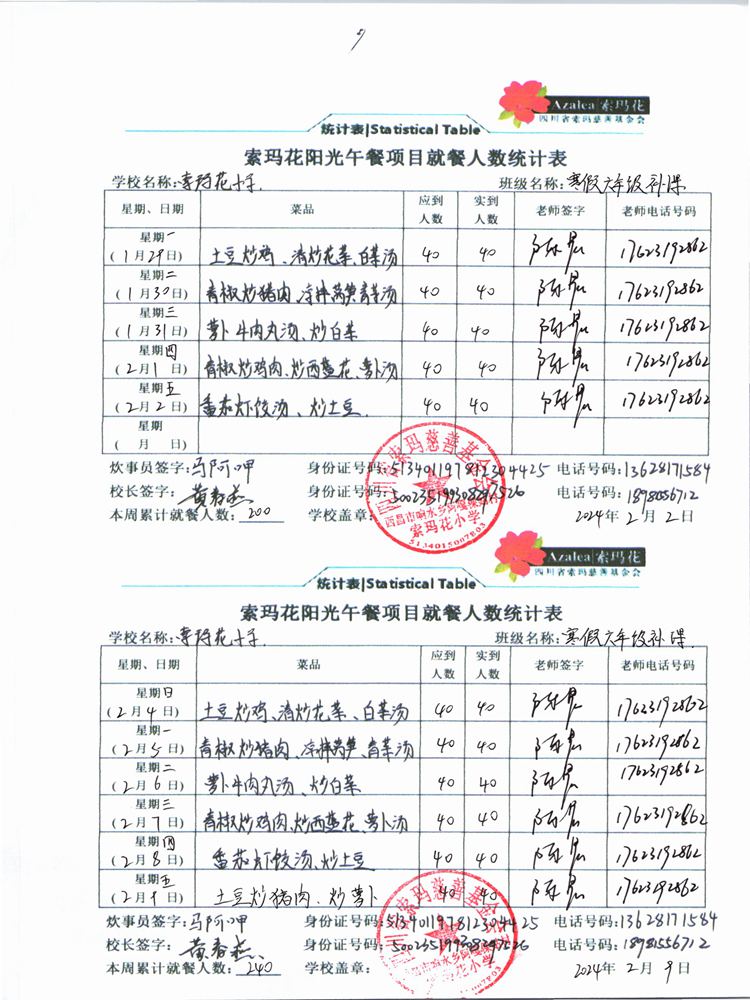 Azalea 索玛花
四川省索玛慈善基金会
统计表|Statistical Table
索玛花阳光午餐项目就餐人数统计表
学校名称:索玛花小学 班级名称:寒假六年级补课
星期、日期 菜品 应到人数 实到人数 老师签字 老师电话号码
星期一 (1月29日) 土豆炒鸡、清炒花菜、白菜汤 40 40 17623192862
星期二 (1月30日) 青椒炒猪肉、凉拌莴笋、青菜汤 40 40 17623192862
星期三 (1月31日) 萝卜牛肉丸汤、炒白菜 40 40 17623192862
星期四 (2月1日) 青椒炒鸡肉、炒西蓝花、萝卜汤 40 40 17623192862
星期五 (2月2日) 番茄炸饺汤、炒土豆. 40 40 17623192862
星期 ( 月 日)
炊事员签字:马阿呷 身份证号码:513401197812304425 电话号码:13628171584
校长签字: 黄春燕 身份证号码: 电话号码:18981556712
本周累计就餐人数: 200 学校盖章: 2024年2月2日
四川省索玛慈善基金会
索玛花小学
5134015007803
Azalea 索玛花
四川省索玛慈善基金会
统计表|Statistical Table
索玛花阳光午餐项目就餐人数统计表
学校名称:索玛花小学 班级名称:寒假六年级补课
星期、日期 菜品 应到人数 实到人数 老师签字 老师电话号码
星期日 (2月4日) 土豆炒鸡、清炒花菜、白菜汤 40 40 17623192862
星期一 (2月5日) 青椒炒猪肉、凉拌莴笋、青菜汤 40 40 17623192862
星期二 (2月6日) 萝卜牛肉丸汤、炒白菜 40 40 17623192862
星期三 (2月7日) 青椒炒鸡肉、炒西蓝花、萝卜汤 40 40 17623192862
星期四 (2月8日) 番茄炸饺汤、炒土豆 40 40 17623192862
星期五 (2月9日) 土豆炒猪肉、炒萝卜 40 40 17623192862
炊事员签字:马阿呷 身份证号码:513401197812304425 电话号码:13628171584
校长签字: 黄春燕 身份证号码: 电话号码:18981556712
本周累计就餐人数: 240 学校盖章: 2024年2月9日
索玛慈善基金会
索玛花小学